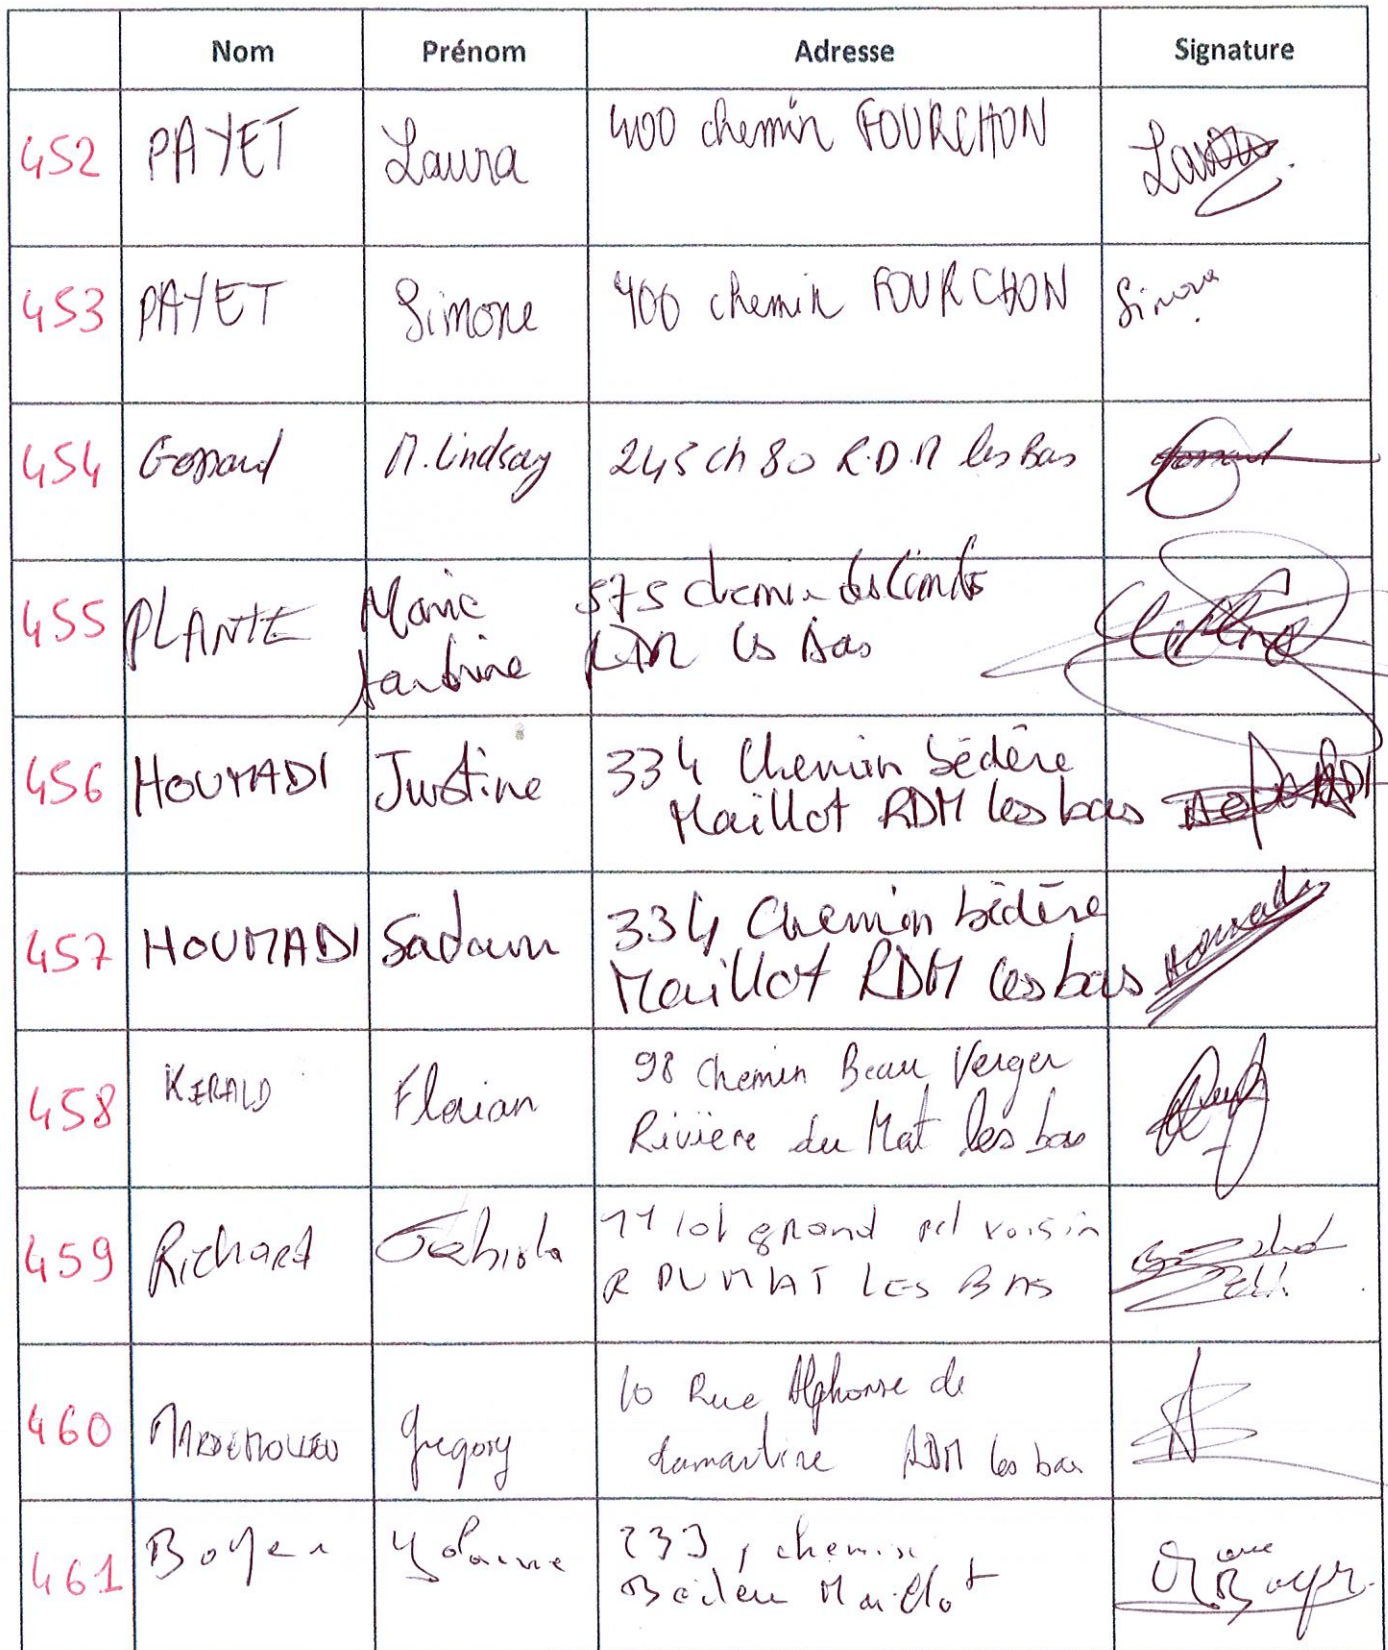 Nom Prénom Adresse Signature
452 PAYET Laura 400 chemin FOURCHON Laura
453 PAYET Simone 400 chemin FOURCHON Simone
454 M. Lindsay 245 ch 80 R.D.M les Bas
455 PLANTE Marie 575 chemin des Limites
RDM les Bas
456 HOUMADI Justine 334 Chemin bédère
Maillot RDM les bas HOUMADI
457 HOUMADI Sadoun 334 Chemin bédère
Maillot RDM les bas Houmadi
458 KERALD Florian 98 chemin Beau Verger
Rivière du Mat les bas
459 Richard Fabiola 11 lot grand voisin
R DUMAT LES BAS
460 Gregory 10 Rue Alphonse de
Lamartine RDM les bas
461 Boyer Yolaine 233, chemin
Maillot Boyer